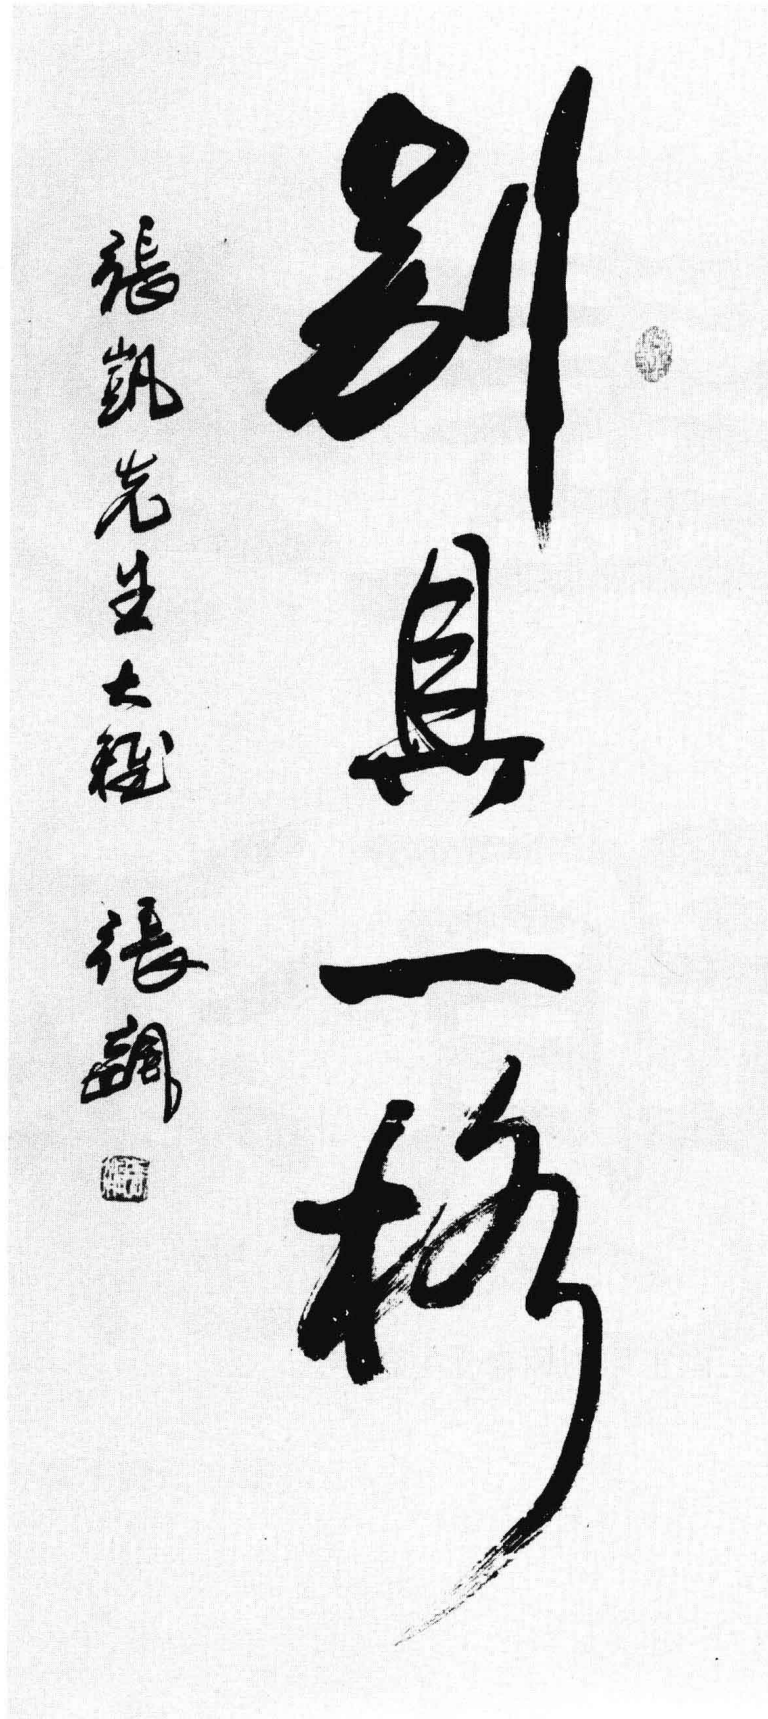 別具一格
張凱先生大雅
張飆